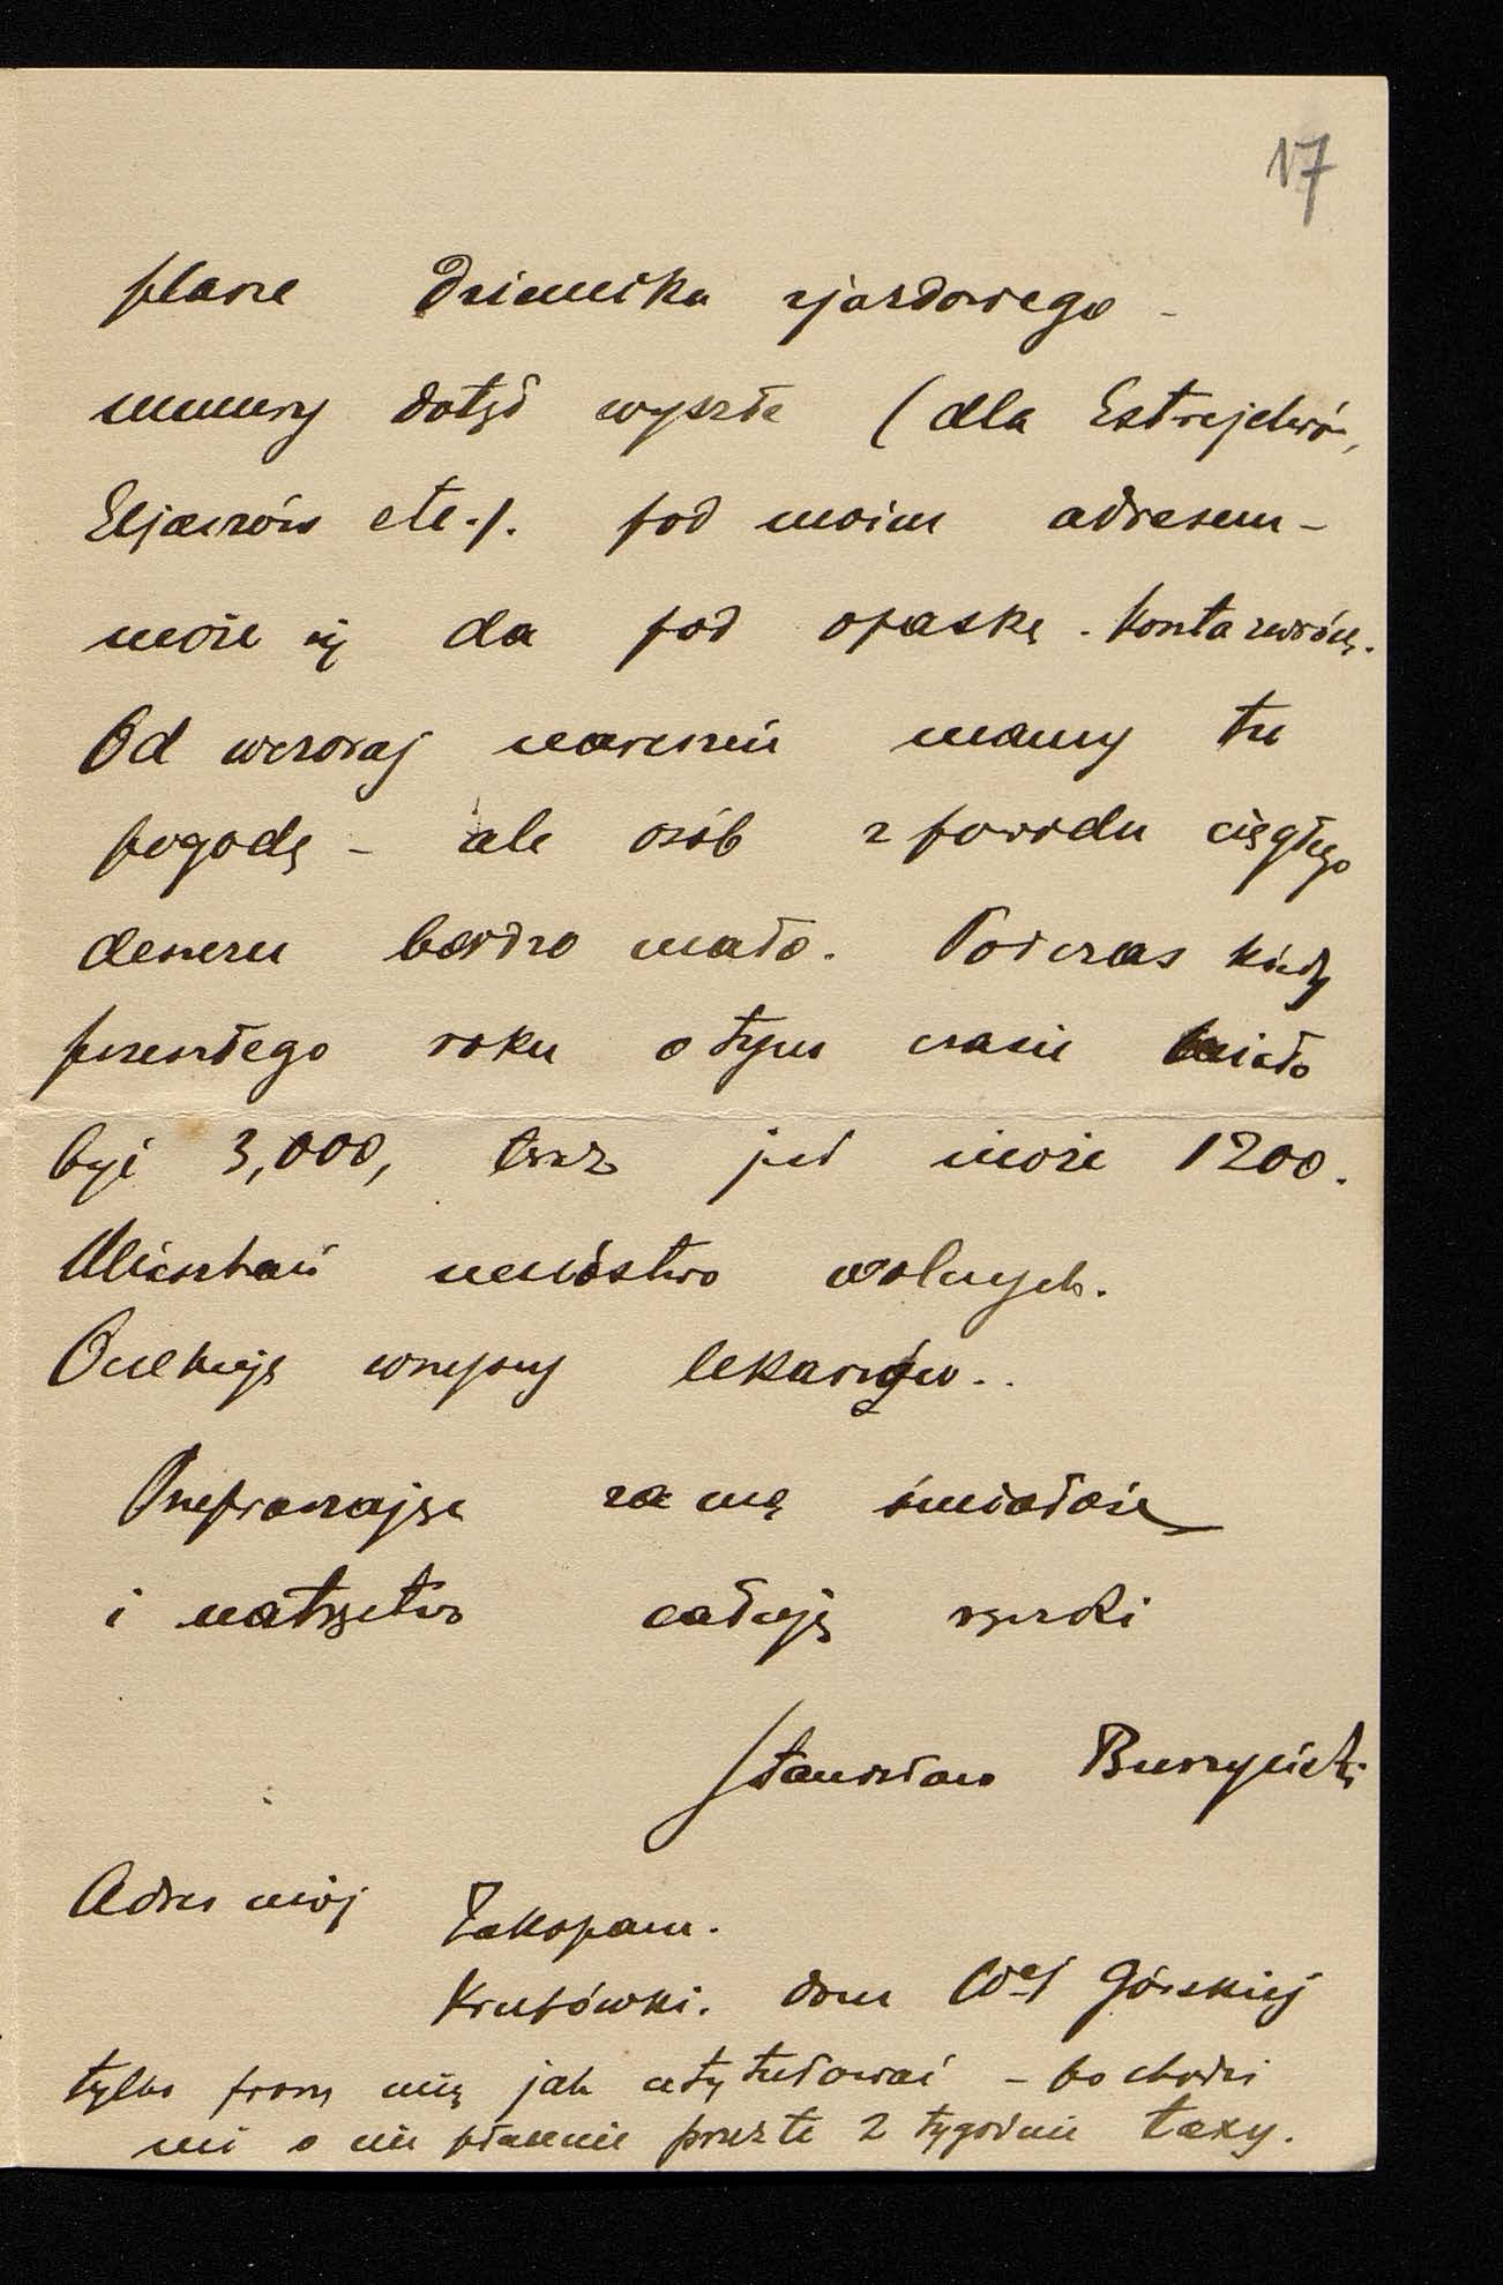 17
plane Dziennika zjazdowego -
numery dotąd wyszłe (dla Estrejchów,
Eljaszów etc.). pod moim adresem -
może się da pod opaskę. Konta zwrócę.
Od wczoraj nareszcie mamy tu
pogodę - ale osób z powodu ciągłego
deszczu bardzo mało. Podczas kiedy
przeszłego roku o tym czasie miało
być 3,000, teraz jest może 1200.
Mieszkań mnóstwo wolnych.
Oczekuję wszyscy lekarzów..
Przepraszając za mą śmiałość
i natręctwo całuję rączki
Stanisław
Adres mój Zakopane.
Krupówki. dom Wej Górskiej
tylko proszę mię jak utytułować - bo chodzi
mi o nie płacenie przez te 2 tygodnie taxy.